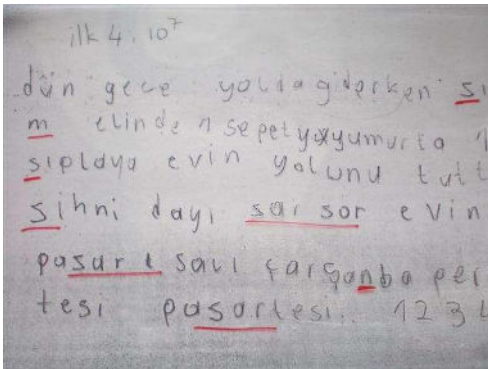 ilk 4. 10⁷
dün gece yolda giderken sı
m elinde n sepet yoxyumurta 1
sıplaya evin yolunu tutt
sihni dayı sar sor evin
pasar t salı çarşanba per
tesi pasartesi.. 1234